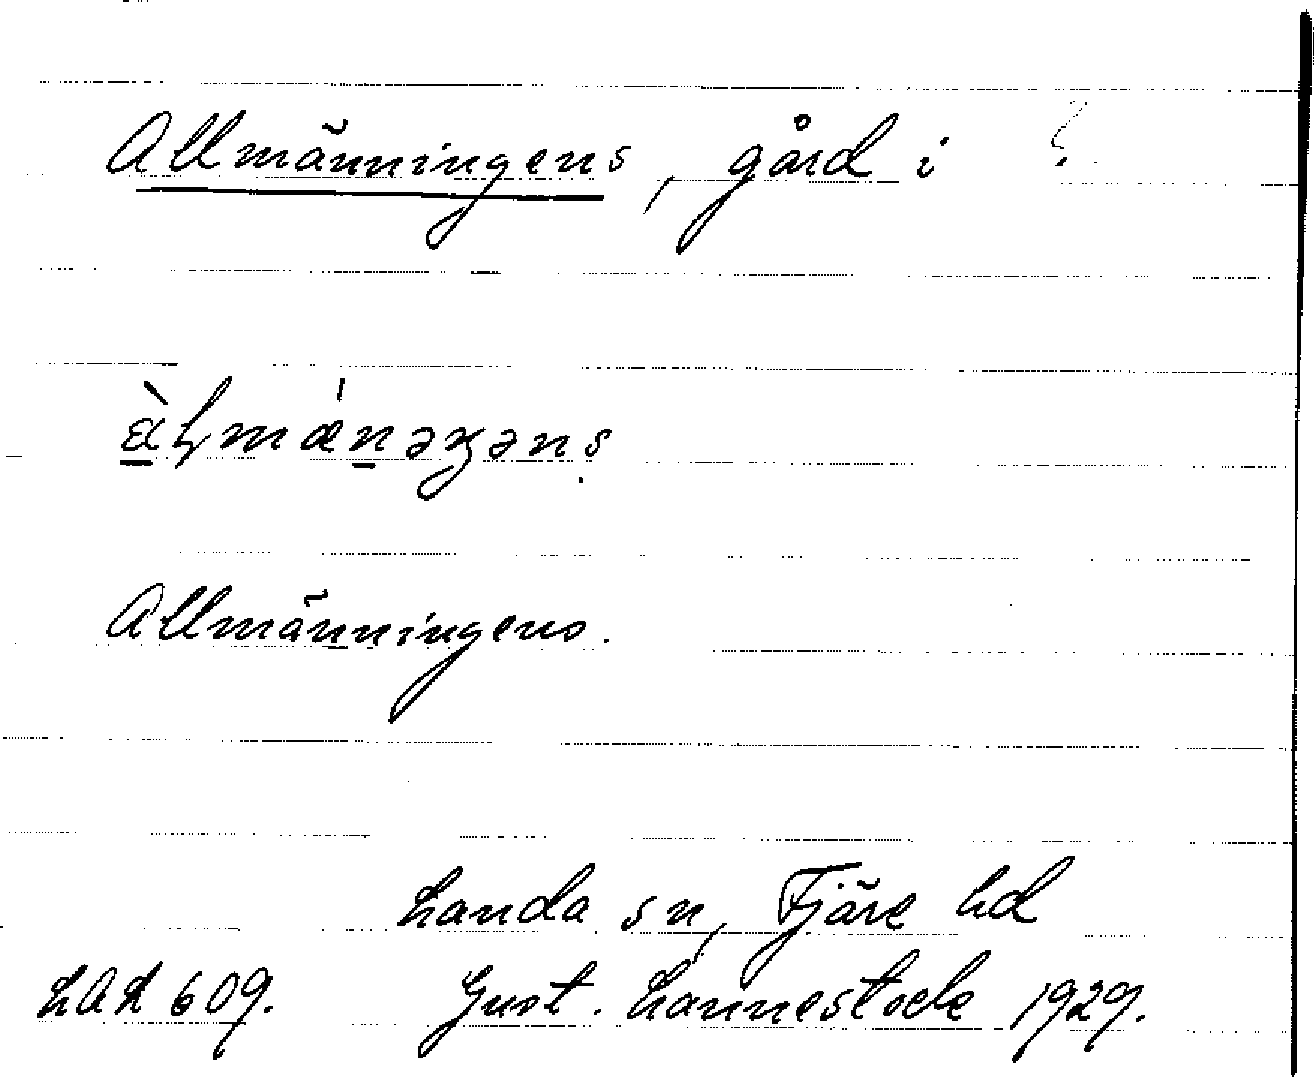 Allmänningens, gård i ?
Allmänningens.
Landa sn, Fjäre hd
LAL 609. Gust. Lännestock 1929.